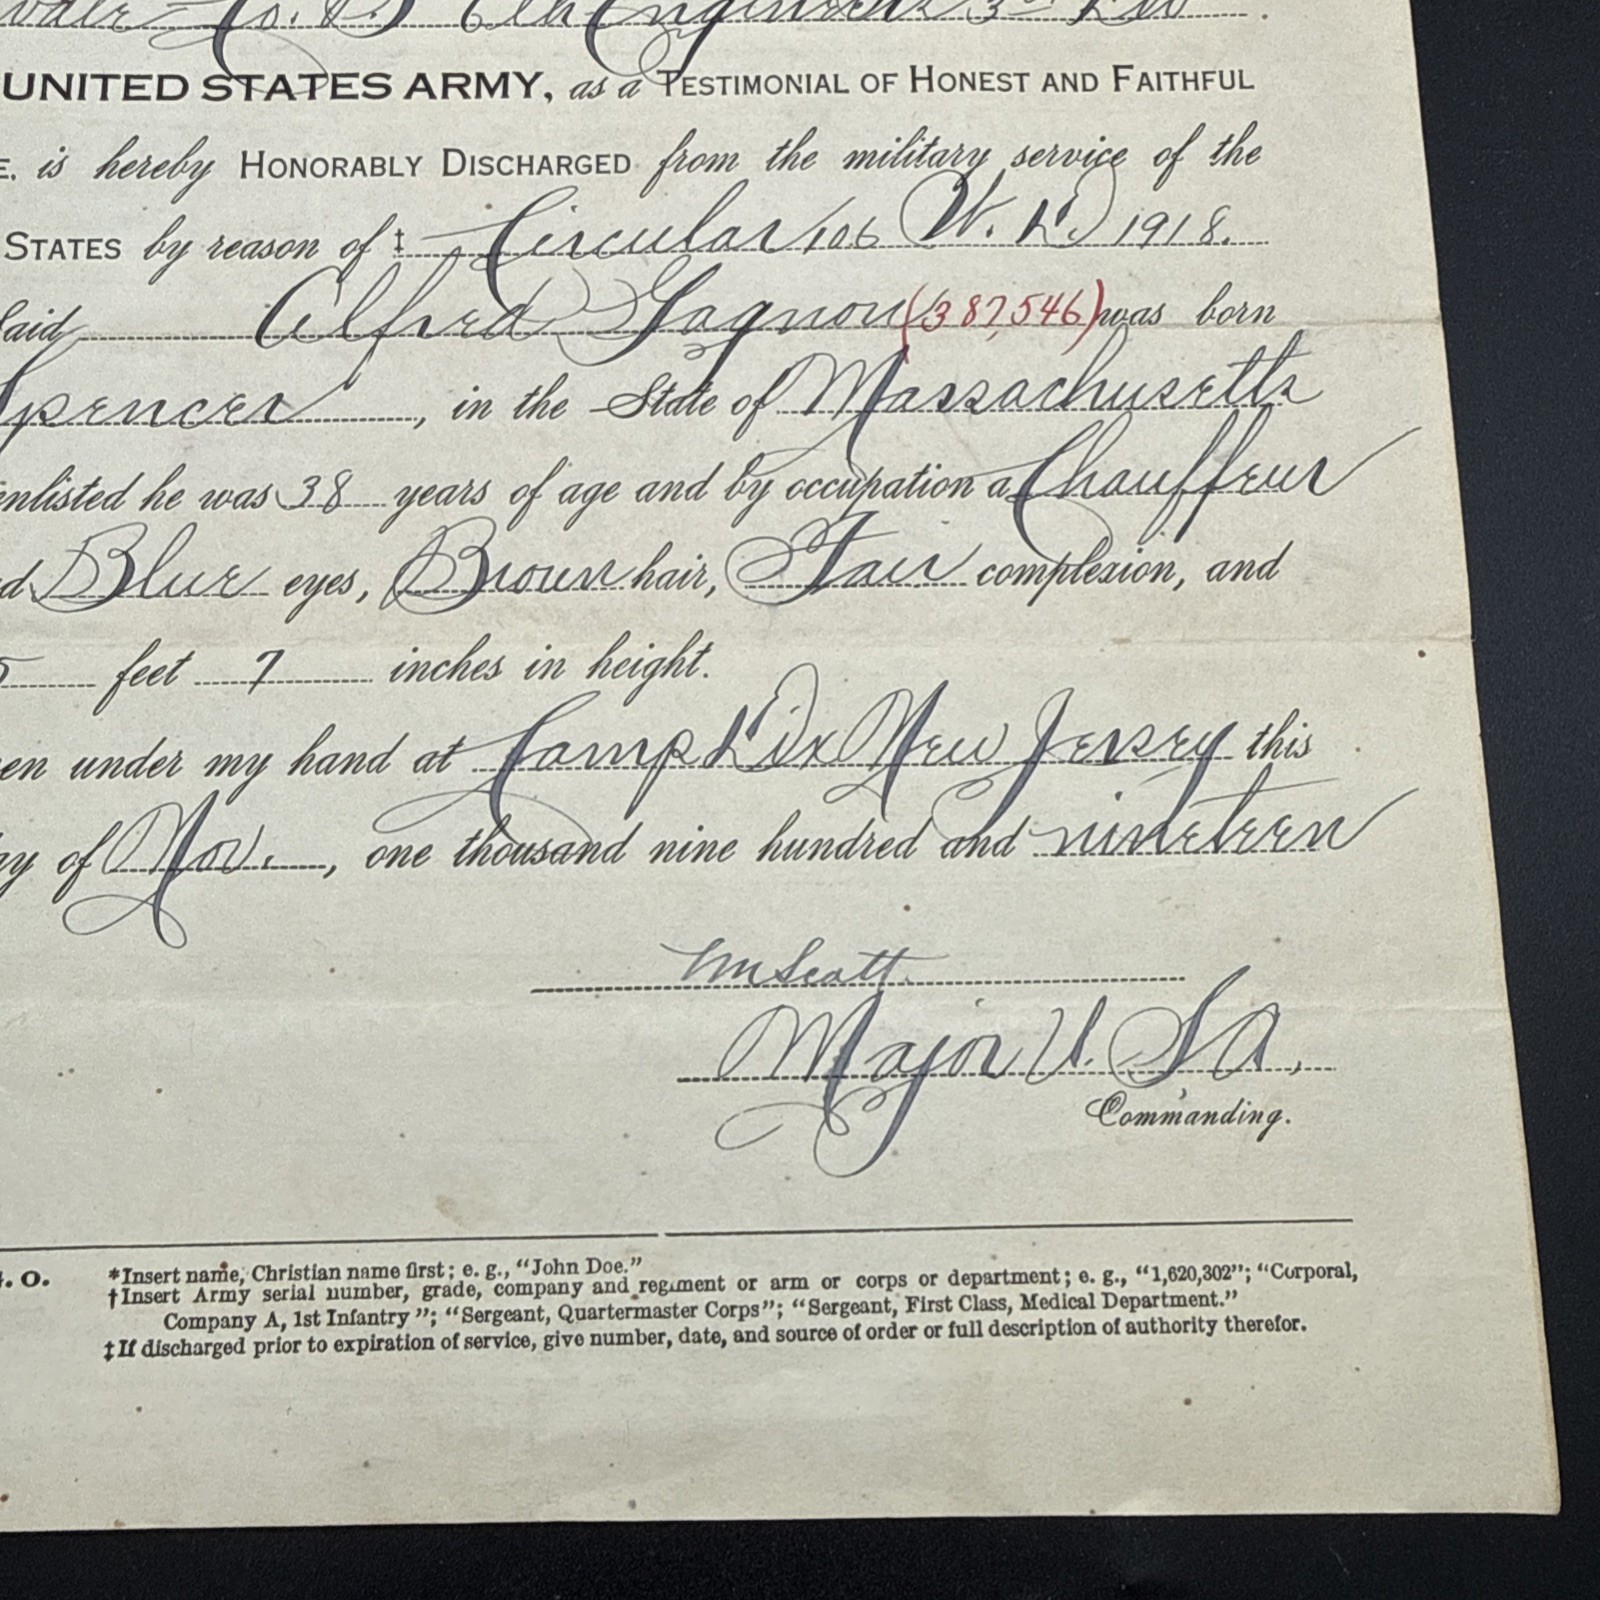 Co. D. 6th Engineers 3rd Div.
UNITED STATES ARMY, as a TESTIMONIAL OF HONEST AND FAITHFUL
is hereby HONORABLY DISCHARGED from the military service of the
STATES by reason of ‡ Circular 106 W. D. 1918.
Said Alfred Gagnon (387,546) was born
Spencer, in the State of Massachusetts
enlisted he was 38 years of age and by occupation a Chauffeur
Blue eyes, Brown hair, Fair complexion, and
5 feet 7 inches in height.
under my hand at Camp Dix New Jersey this
of Nov., one thousand nine hundred and nineteen
Wm Scott
Major U. S. A.,
Commanding.
G. O.
*Insert name, Christian name first; e. g., “John Doe.”
†Insert Army serial number, grade, company and regiment or arm or corps or department; e. g., “1,620,302”; “Corporal,
Company A, 1st Infantry”; “Sergeant, Quartermaster Corps”; “Sergeant, First Class, Medical Department.”
‡If discharged prior to expiration of service, give number, date, and source of order or full description of authority therefor.